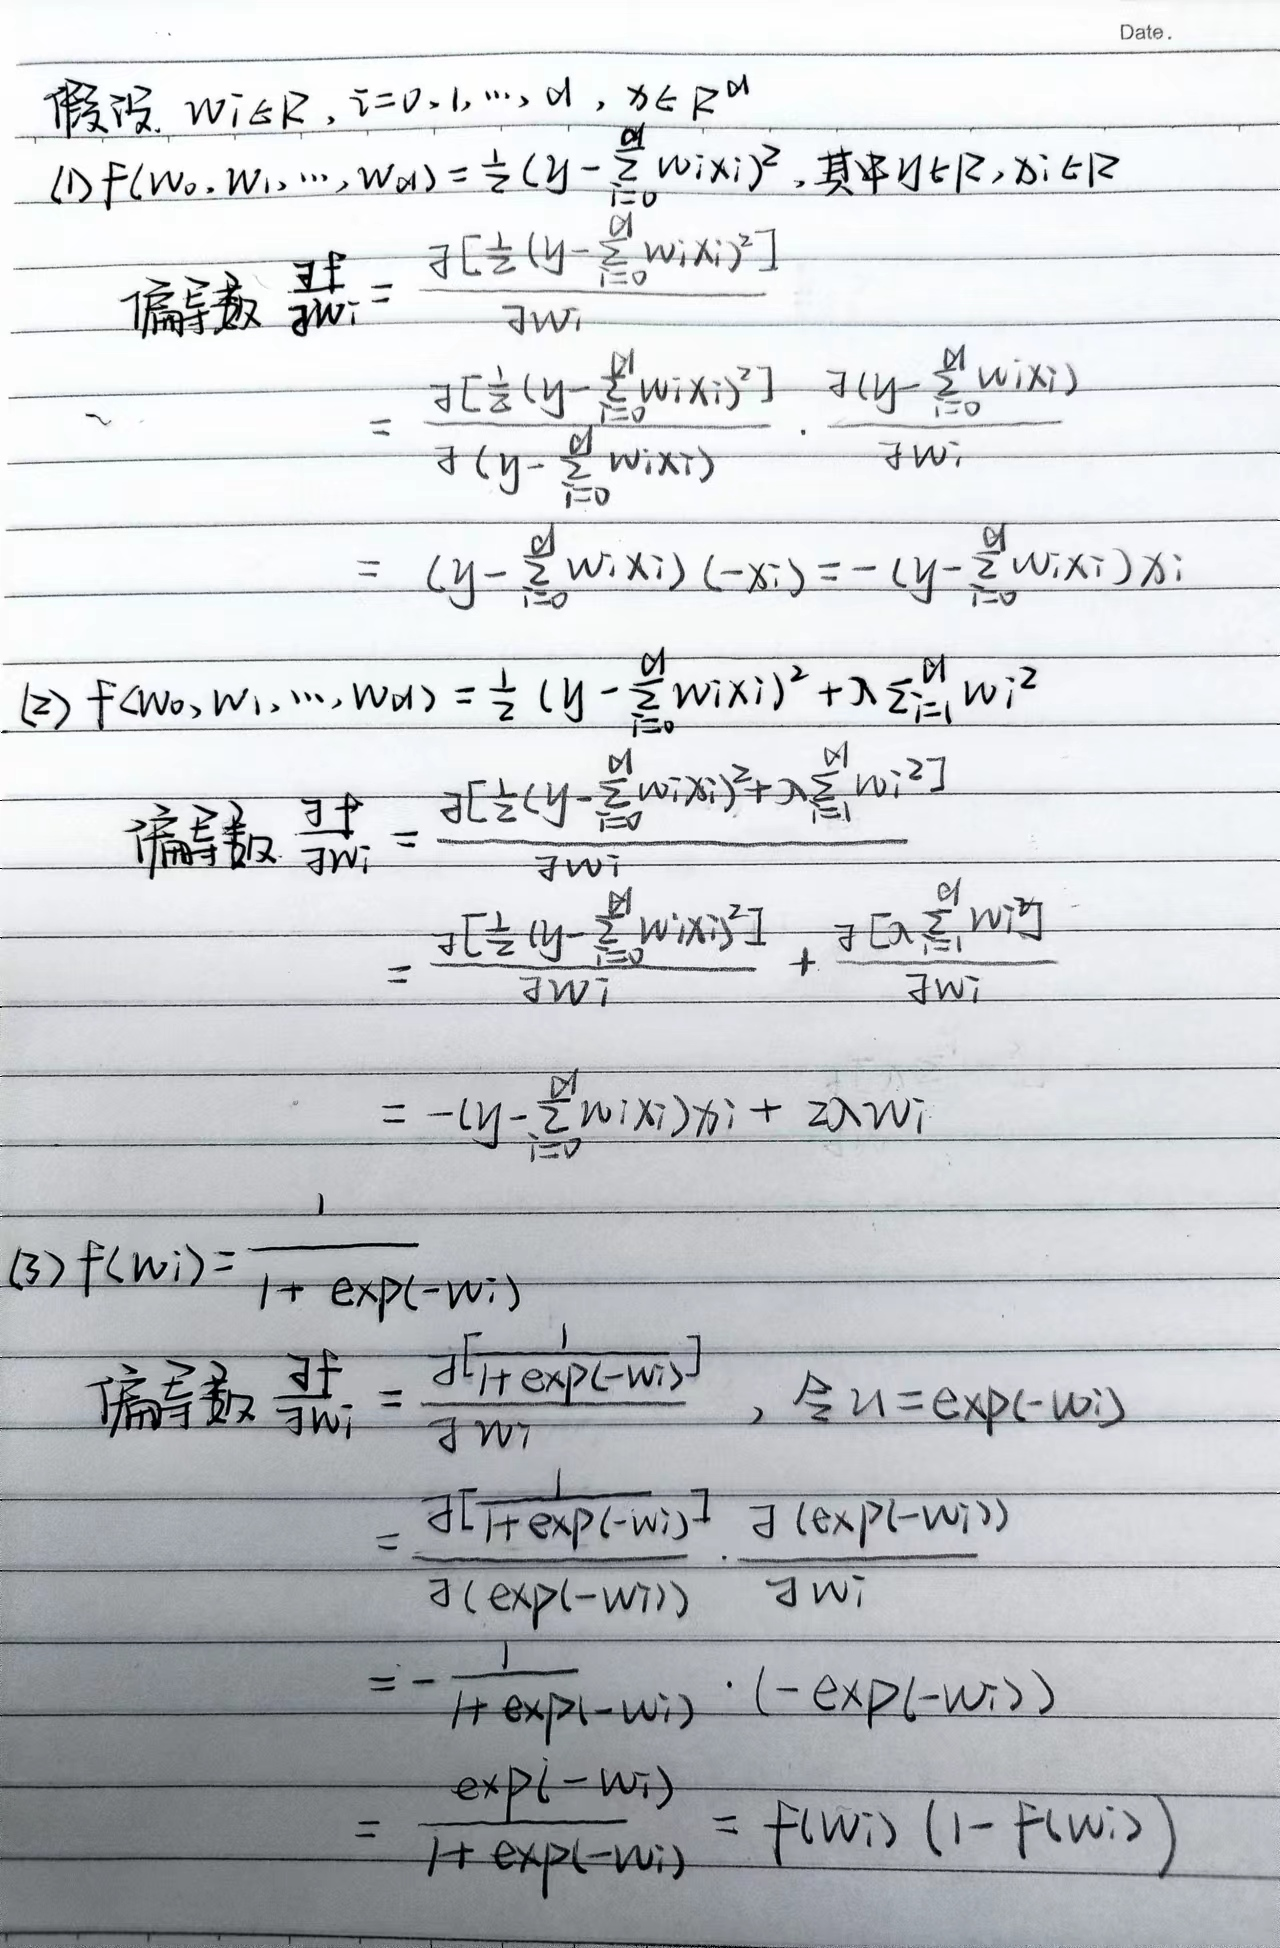 Date.
假设 wi∈R, i=0,1,…,d, x∈R^d
(1) f(w₀,w₁,…,w_d) = 1/2 (y-∑_{i=0}^{d} wixi)², 其中y∈R, xi∈R
偏导数 ∂f/∂wi = ∂[1/2 (y-∑_{i=0}^{d} wixi)²] / ∂wi
= ∂[1/2 (y-∑_{i=0}^{d} wixi)²] / ∂(y-∑_{i=0}^{d} wixi) · ∂(y-∑_{i=0}^{d} wixi) / ∂wi
= (y-∑_{i=0}^{d} wixi)(-xi) = -(y-∑_{i=0}^{d} wixi)xi
(2) f(w₀,w₁,…,w_d) = 1/2 (y-∑_{i=0}^{d} wixi)² + λ∑_{i=1}^{d} wi²
偏导数 ∂f/∂wi = ∂[1/2 (y-∑_{i=0}^{d} wixi)² + λ∑_{i=1}^{d} wi²] / ∂wi
= ∂[1/2 (y-∑_{i=0}^{d} wixi)²] / ∂wi + ∂[λ∑_{i=1}^{d} wi²] / ∂wi
= -(y-∑_{i=0}^{d} wixi)xi + 2λwi
(3) f(wi) = 1 / (1+exp(-wi))
偏导数 ∂f/∂wi = ∂[1/(1+exp(-wi))] / ∂wi , 令u=exp(-wi)
= ∂[1/(1+exp(-wi))] / ∂(exp(-wi)) · ∂(exp(-wi)) / ∂wi
= - 1/(1+exp(-wi)) · (-exp(-wi))
= exp(-wi) / (1+exp(-wi)) = f(wi)(1-f(wi))